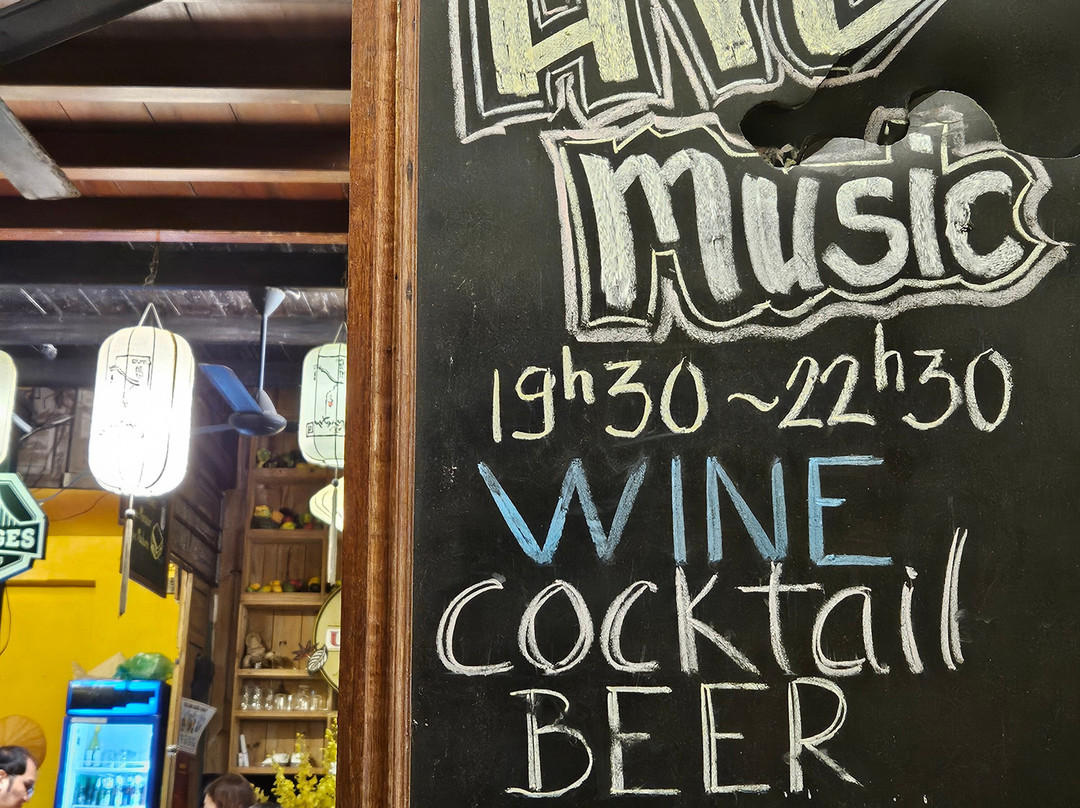 LIVE
music
19h30 ~ 22h30
WINE
cocktail
BEER
GES